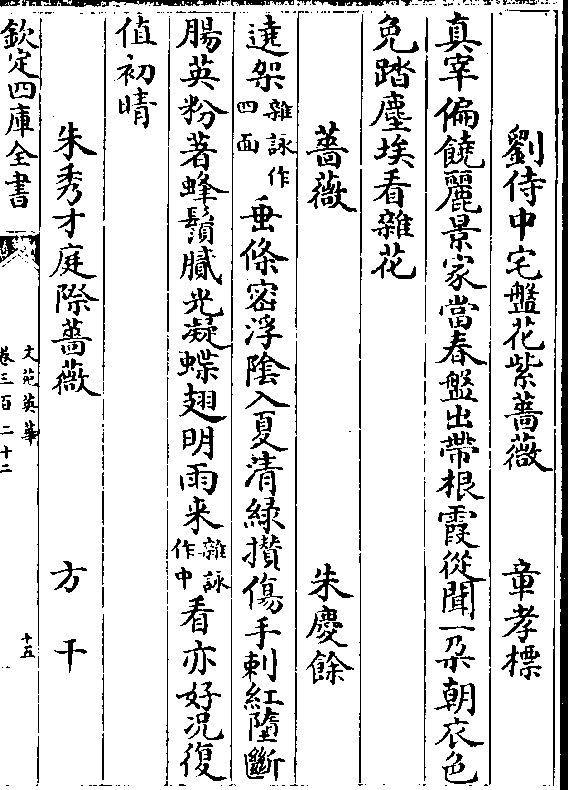 劉侍中宅盤花紫薔薇　章孝標
真宰偏饒麗景家當春盤出帶根霞從聞一朶朝衣色
免踏塵埃看雜花
薔薇　朱慶餘
遶架雜詠作四面垂條密浮陰入夏清緑攅傷手刺紅墮斷
腸英粉著蜂鬚膩光凝蝶翅明雨来雜詠作中看亦好况復
值初晴
朱秀才庭際薔薇　方干
欽定四庫全書　文苑英華　卷三百二十二　十五